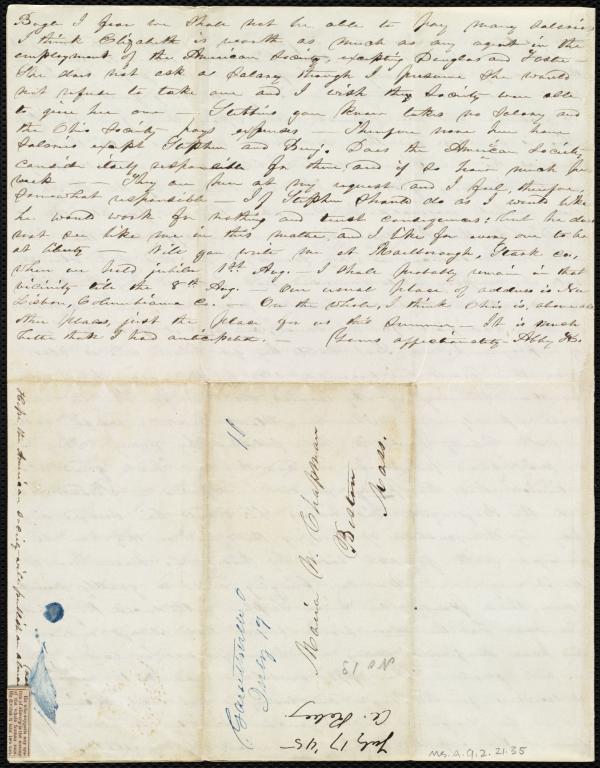 Bugle I fear we shall not be able to pay many salaries
I think Elizabeth is worth as much as any agent in the
employment of the American Society, excepting Douglas and Foster —
She does not ask a salary though I presume she would
not refuse to take one and I wish the Society were able
to give her one — Stebbins you know takes no salary and
the Ohio Society pays expenses — Therefore none here have
salaries except Stephen and Benj. Does the American Society
consider itself responsible for them, and if so how much per
week — They are here at my request and I feel, therefore,
somewhat responsible — If Stephen should do as I would like
he would work for nothing and trust consequences: but he does
not see like me in this matter, and I like for every one to be
at liberty — Will you write me at Marlborough, Stark co,
where we hold jubilee 1st Aug. — I shall probably remain in that
vicinity till the 8th Aug. — Our usual place of address is New
Lisbon, Columbiana Co. — On the whole, I think Ohio is, above all
other places, just the place for us this summer — It is much
better than I had anticipated. — Yours affectionately Abby K.
Hope the American Society will publish an
18
Maria W. Chapman
Boston
Mass.
July 17
No 13
A. Kelley
July 17 '45
Ms.A.9.2.21.35